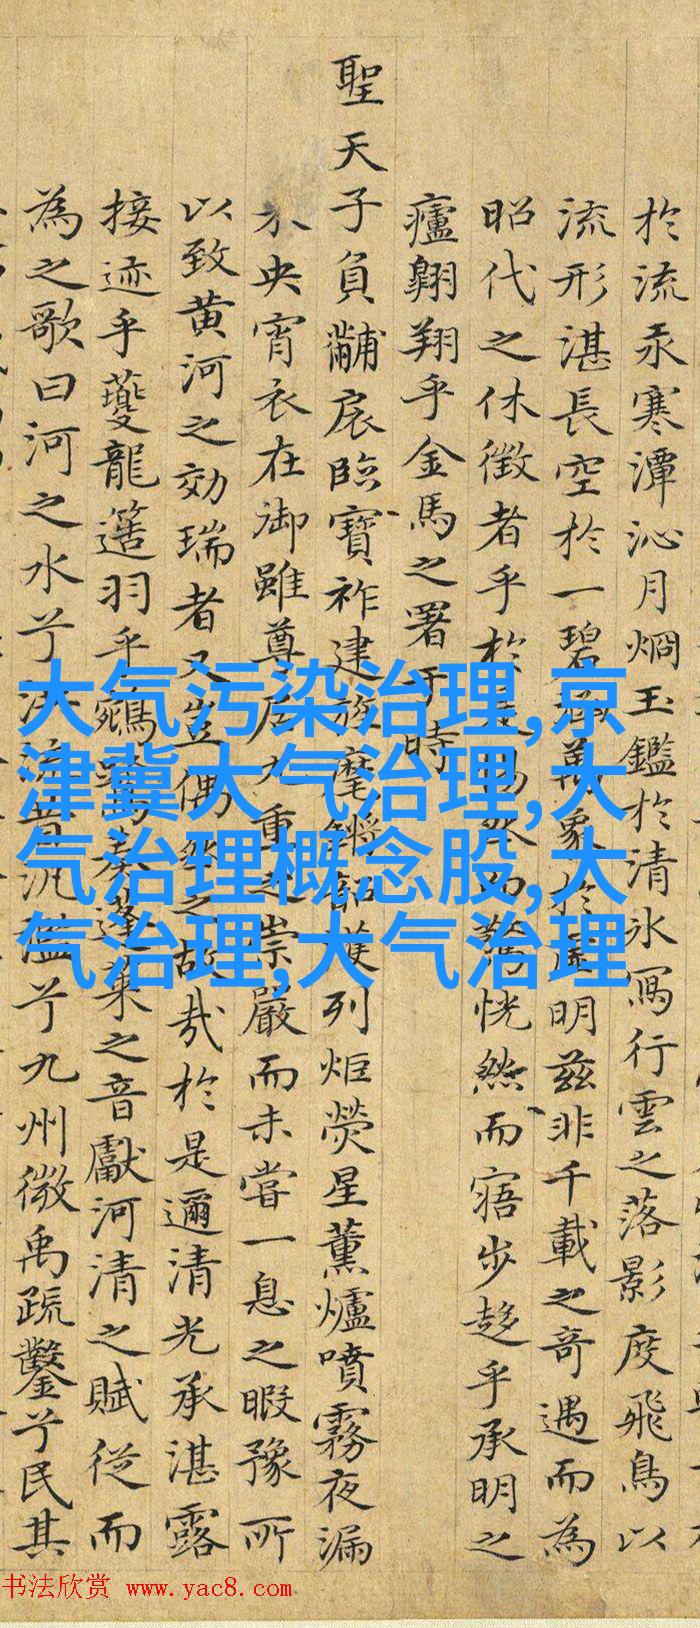 於流汞寒潭沁月烱玉鑑於清氷冩行雲之落影度飛鳥以
流形湛長空於一碧萬象於明茲非千載之奇遇而為
昭代之休徵者乎於然而驚恍然而寤步趍乎承明之
廬翺翔乎金馬之署于時
聖天子負黼扆臨寶祚建麾鏘韶頀列炬熒星薰爐噴霧夜漏
未央宵衣在御雖尊居九重之崇嚴而未嘗一息之暇豫所
以致黄河之効瑞者又豈偶然之故哉於是邇清光承湛露
接迹乎夔龍簉羽乎鵷鷺奏蓬萊之音獻河清之賦從而
為之歌曰河之水兮流兮九州微禹疏鑿兮民其
大气污染治理,京
津冀大气治理,大
气治理概念股,大
气治理,大气治理
书法欣赏 www.yac8.com